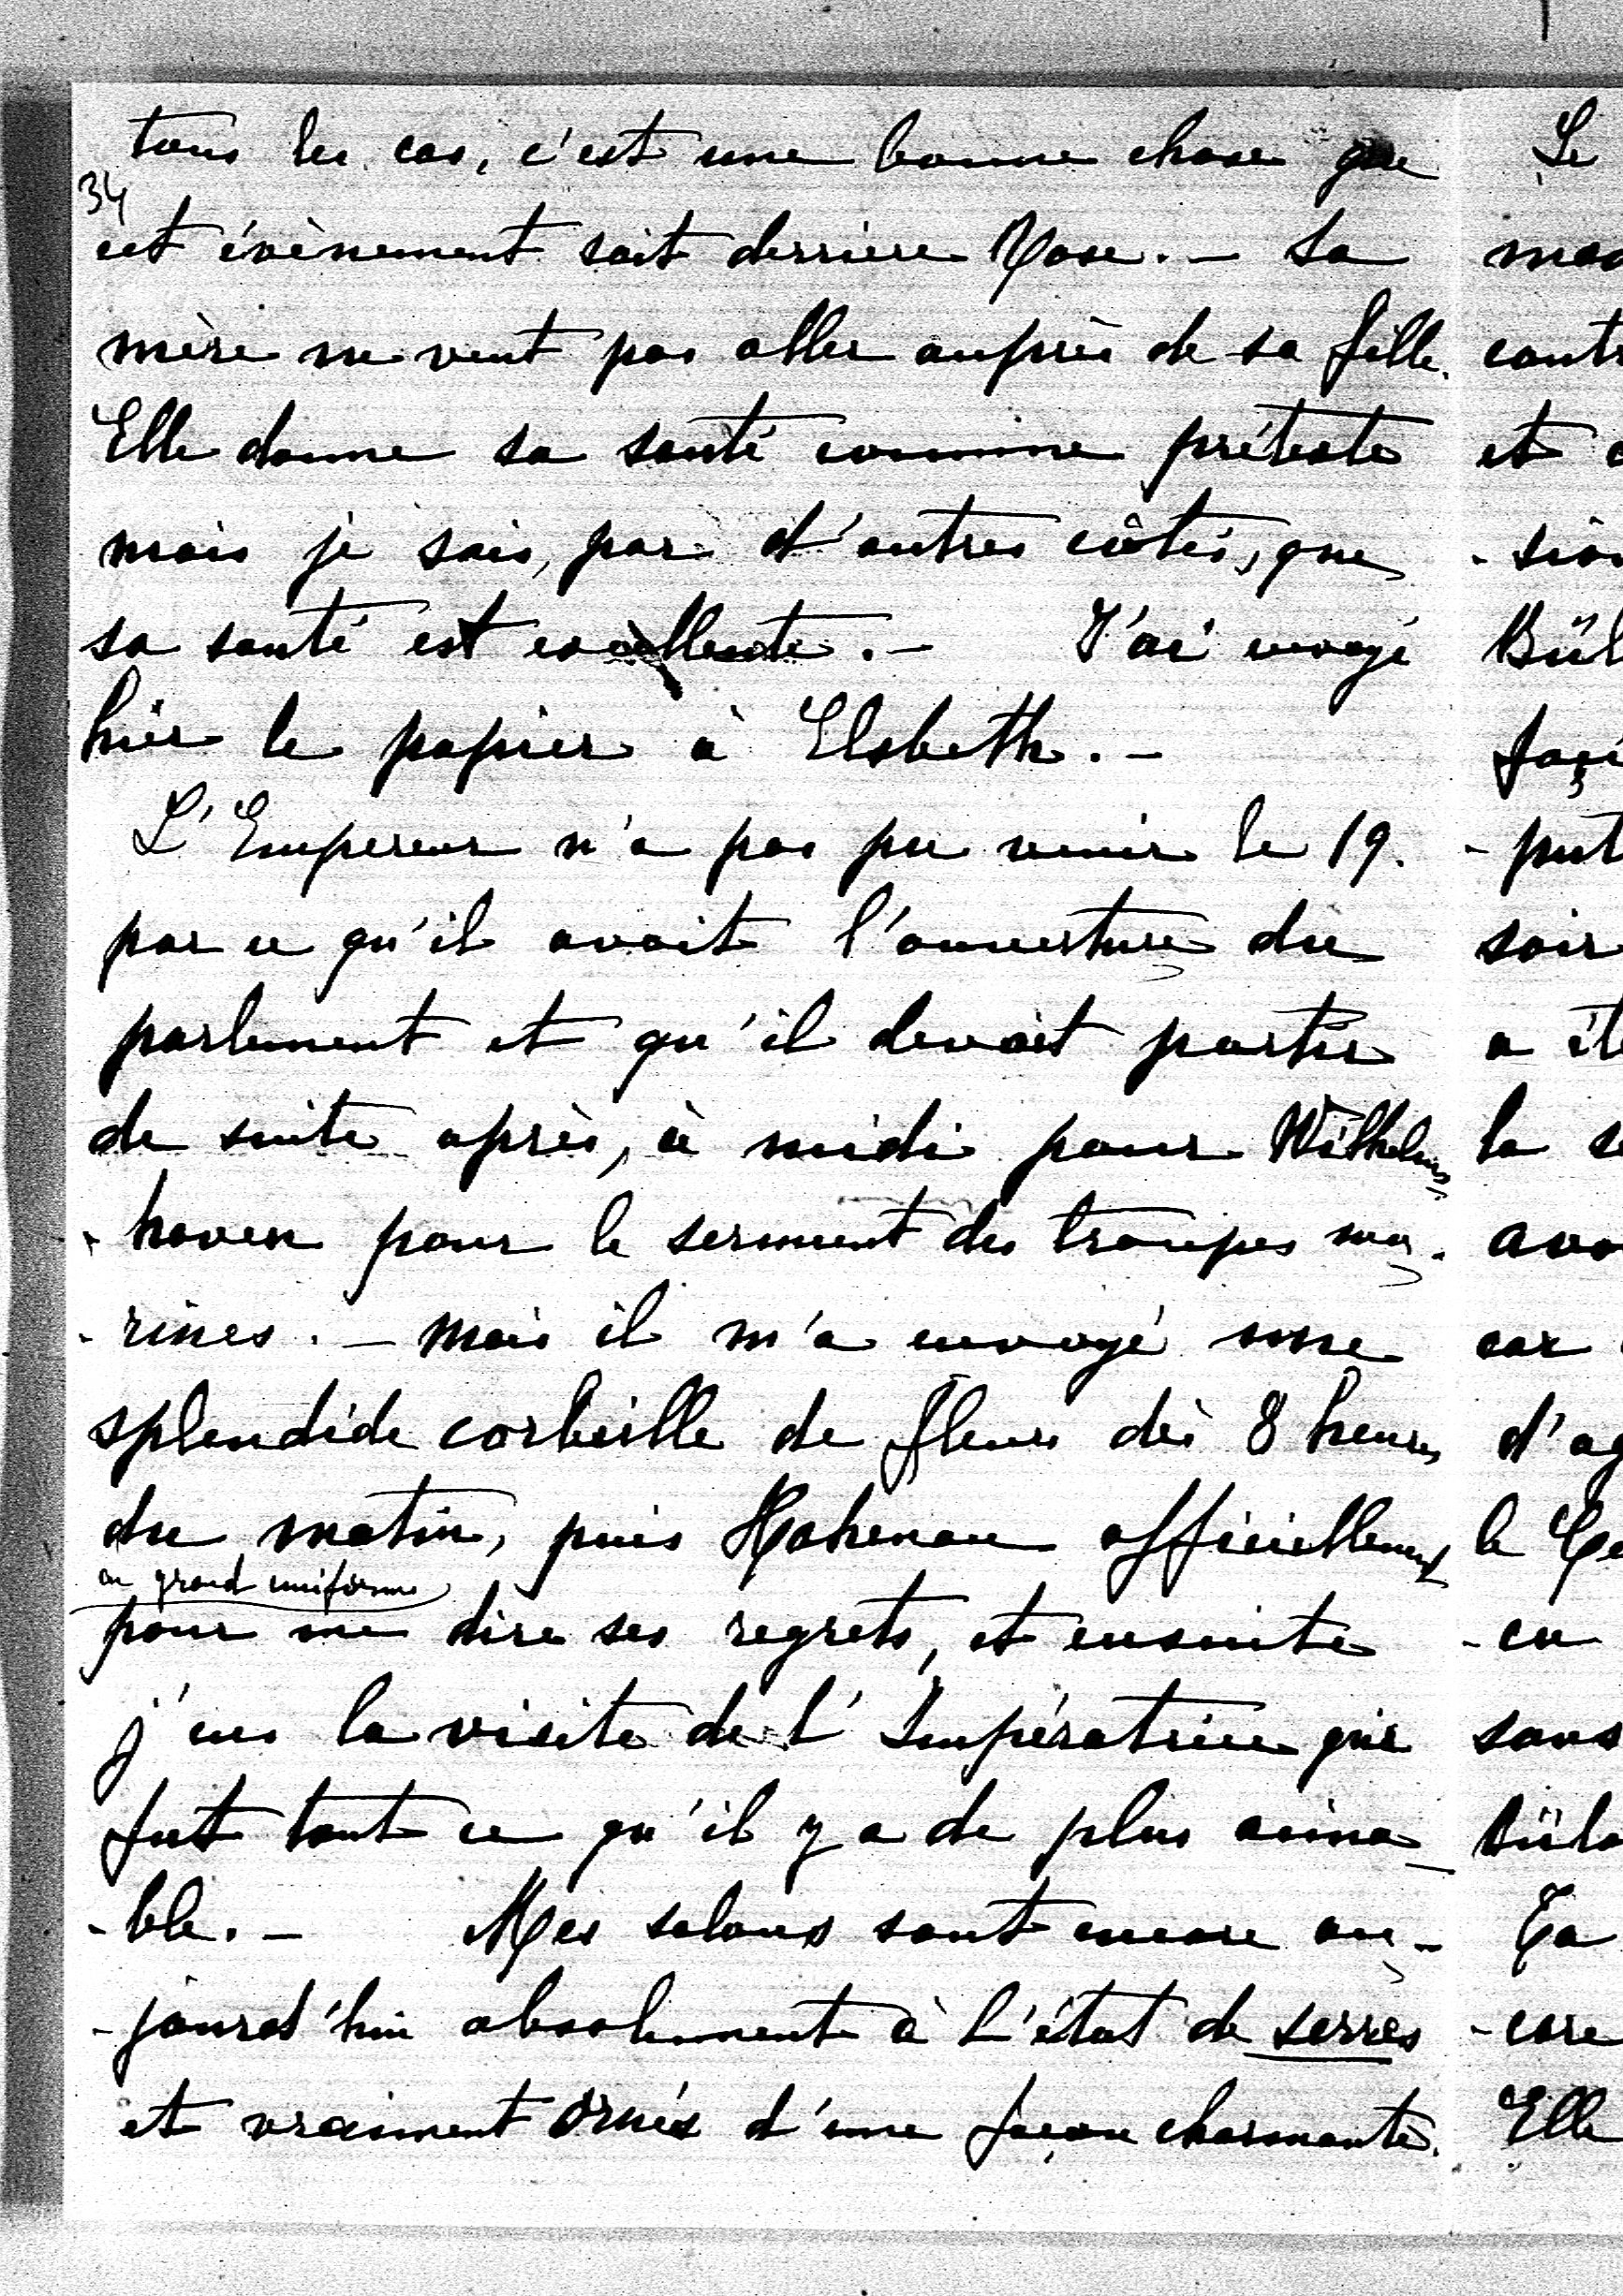 tous les cas, c'est une bonne chose que
34
cet évènement soit derriere Rose. — Sa
mère ne veut pas aller auprès de sa fille.
Elle donne sa santé comme prétexte
mais je sais, par d'autres côtés, que
sa santé est excellente. — J'ai envoyé
hier le papier à Elsbeth. —
L'Empereur n'a pas pu venir le 19.
par ce qu'il avait l'ouverture du
parlement et qu'il devait partir
de suite après, à midi pour Wilhelms
-haven pour le serment des troupes ma-
-rines. — Mais il m'a envoyé une
splendide corbeille de fleurs dès 8 heures
du matin, puis Hohenau officiellement
en grand uniforme
pour me dire ses regrets, et ensuite
j'eus la visite de l'Impératrice qui
fut tout ce qu'il y a de plus aima-
-ble. — Mes salons sont encore au-
-jourd'hui absolument à l'état de serres
et vraiment ornés d'une façon charmante.
Le
et
soir
la
car
le
-cu
sans
Elle